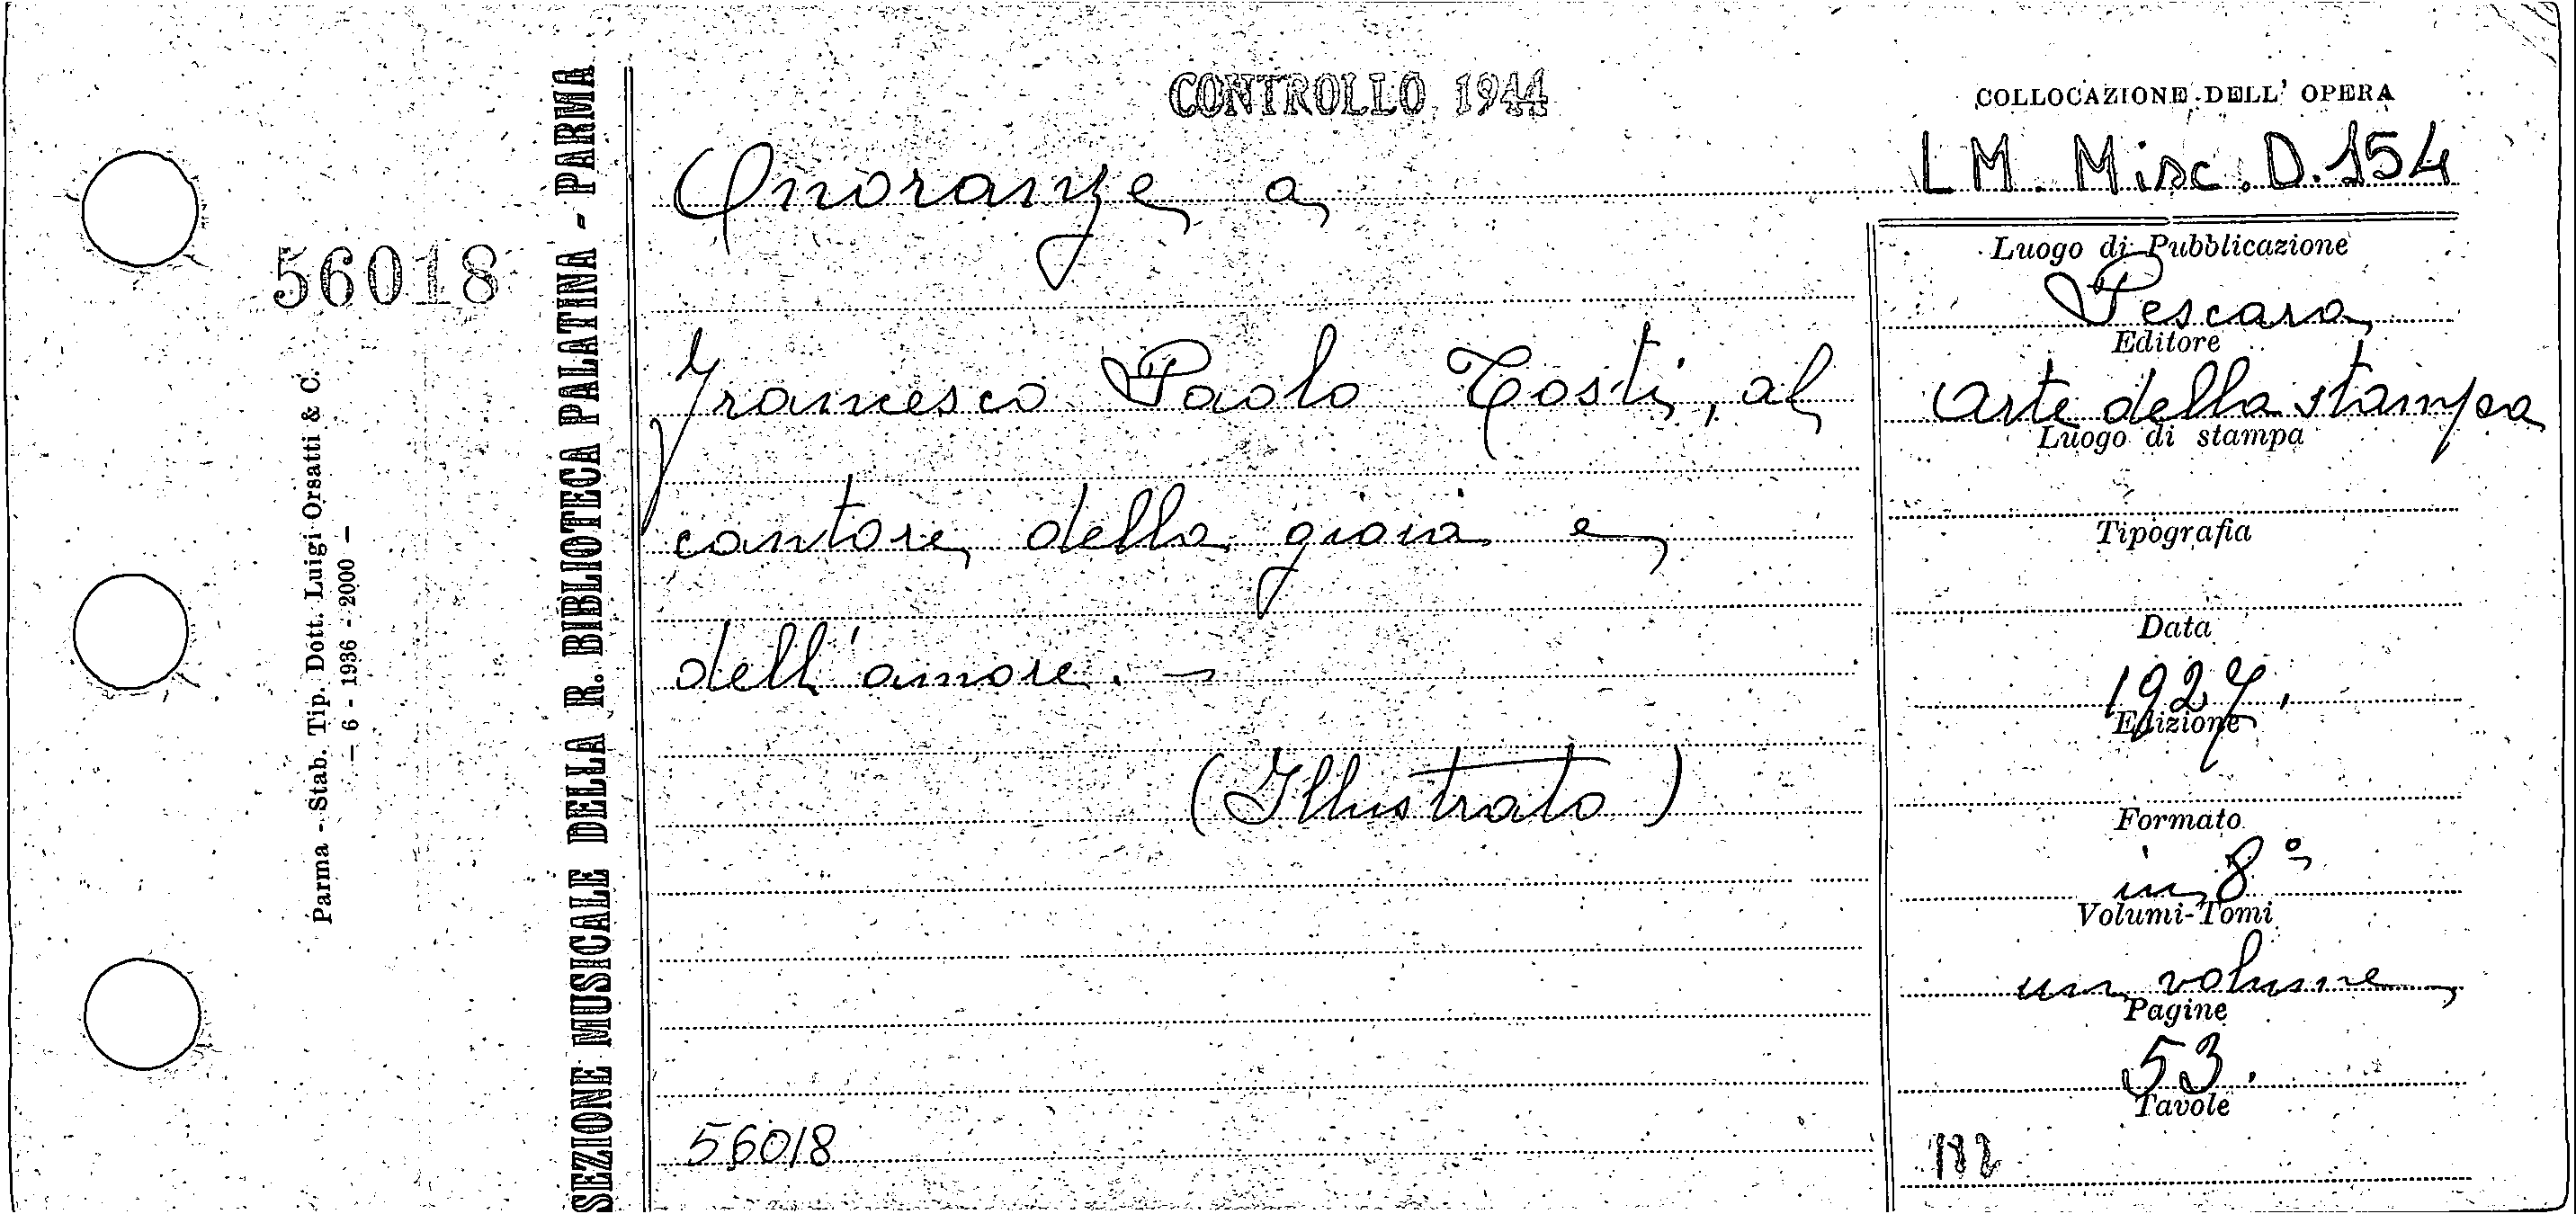 CONTROLLO 1944
COLLOCAZIONE DELL' OPERA
LM. Misc. D. 154
Onoranze a
Francesco Paolo Tosti, al
cantore della gioia e
dell'amore. –
(Illustrato)
56018
Luogo di Pubblicazione
Pescara
Editore
Arte della stampa
Luogo di stampa
Tipografia
Data
1927.
Edizione
Formato
in 8°
Volumi-Tomi
un volume
Pagine
53.
Tavole
56018
Parma - Stab. Tip. Dott. Luigi Orsatti & C.
— 6 - 1936 - 2000 —
SEZIONE MUSICALE DELLA R. BIBLIOTECA PALATINA - PARMA